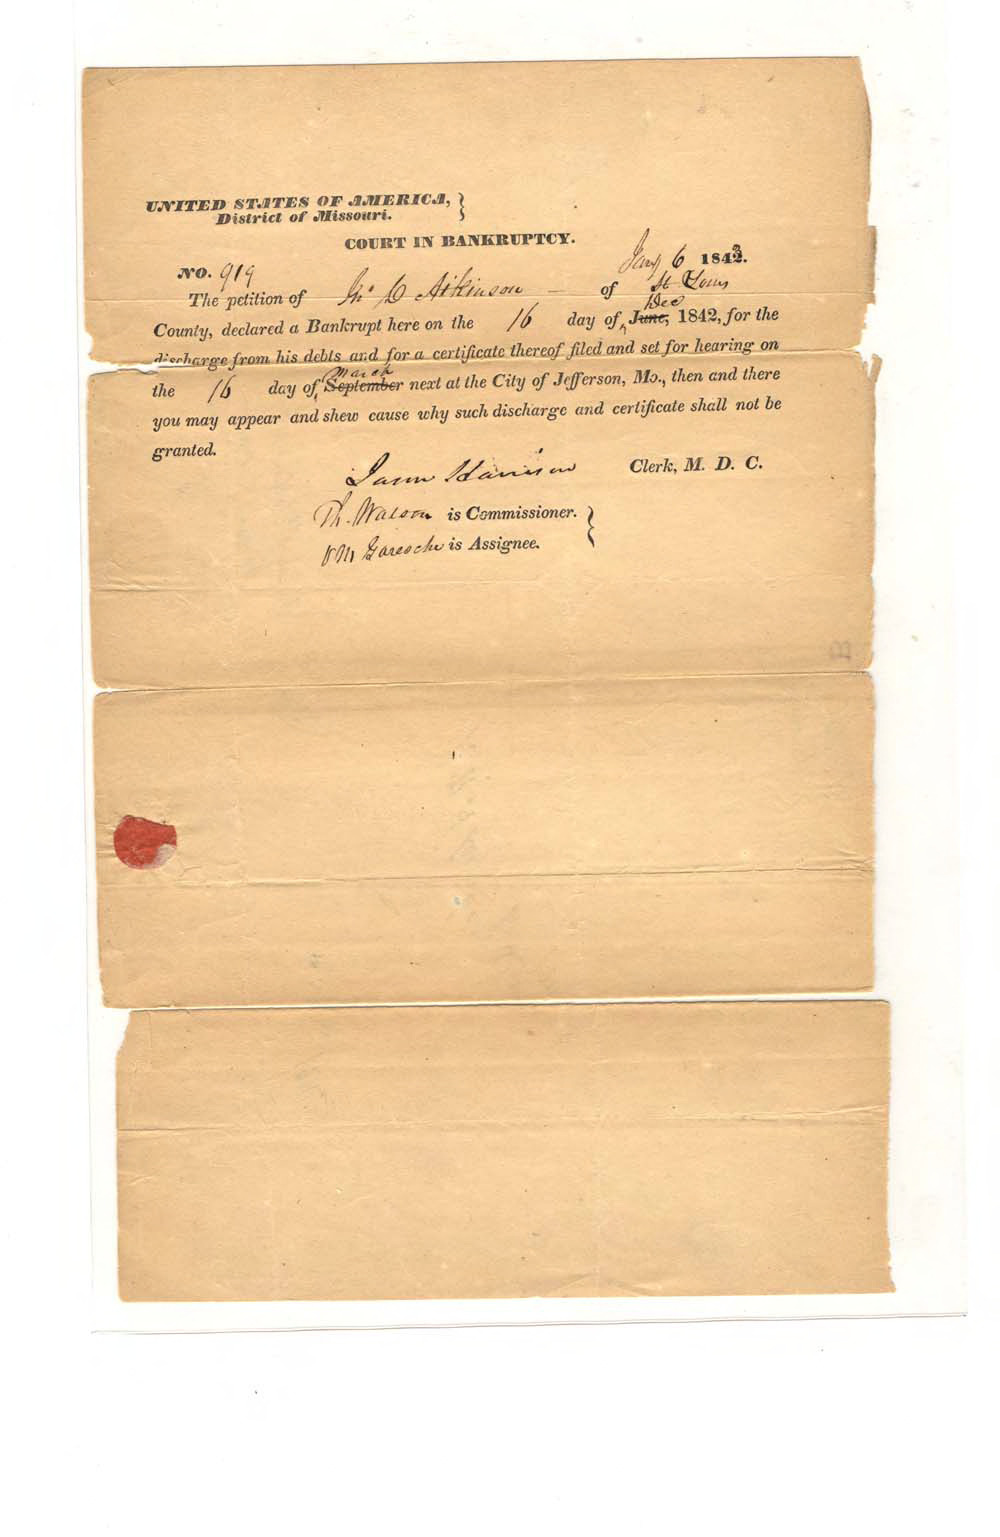 UNITED STATES OF AMERICA, }
District of Missouri.
COURT IN BANKRUPTCY.
Jany 6 1843.
NO. 919
The petition of Jno D Atkinson — of St Louis
County, declared a Bankrupt here on the 16 day of Dec June, 1842, for the
discharge from his debts and for a certificate thereof filed and set for hearing on
the 16 day of March September next at the City of Jefferson, Mo., then and there
you may appear and shew cause why such discharge and certificate shall not be
granted.
Jason Harrison Clerk, M. D. C.
Th. Watson is Commissioner. }
V M Garesche is Assignee.
B